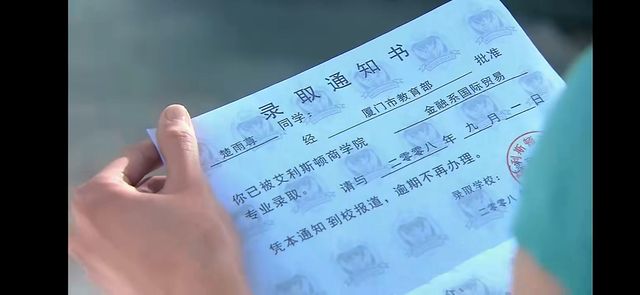 录取通知书
楚雨荨 同学：
经 厦门市教育部 批准
你已被艾利斯顿商学院 金融系国际贸易
专业录取。 请与 二零零八 年 九 月 一 日
凭本通知到校报道，逾期不再办理。
录取学校：
利斯顿
二零零八